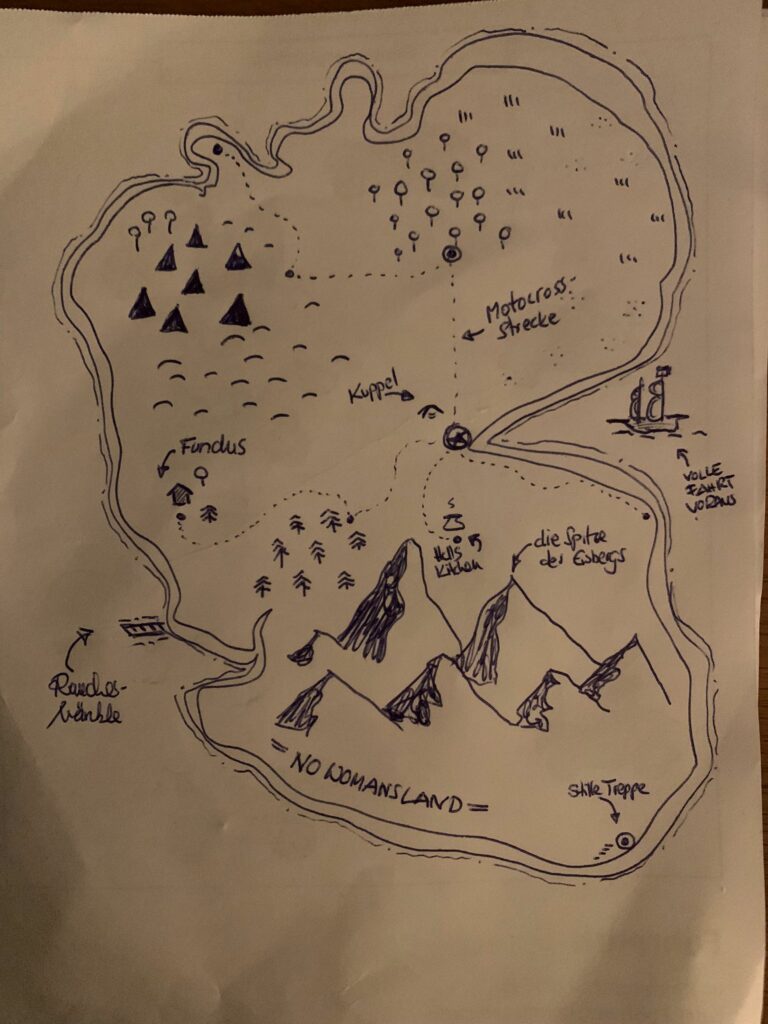 Motocross-
strecke
Kuppel
Fundus
VOLLE
FAHRT
VORAUS
Hells
Kitchen
die Spitze
des Eisbergs
NO WOMANSLAND
Stille Treppe